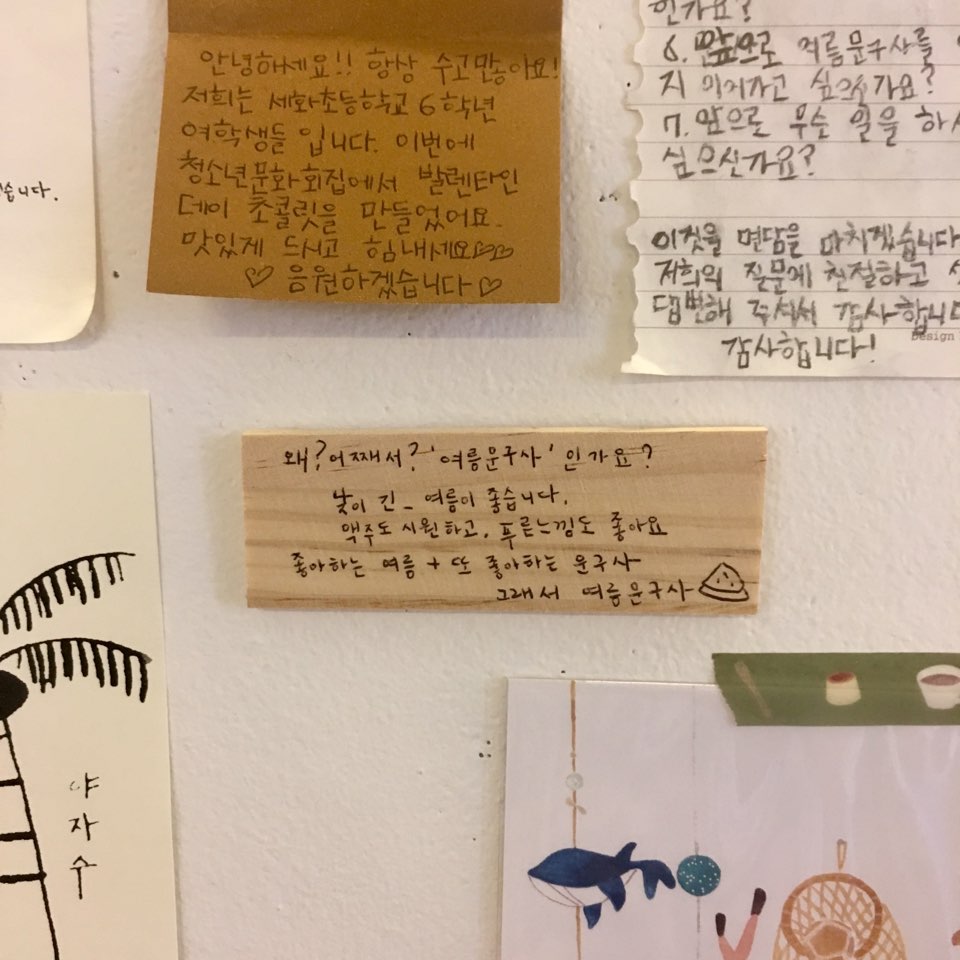 습니다.
안녕하세요!! 항상 수고많아요!
저희는 세화초등학교 6학년
여학생들 입니다. 이번에
청소년문화회집에서 발렌타인
데이 초콜릿을 만들었어요.
맛있게 드시고 힘내세요
응원하겠습니다
인가요?
6. 앞으로 여름문구사를
지 이어가고 싶으신가요?
7. 앞으로 무슨 일을 하
싶으신가요?
이것을 면담을 마치겠습니다
저희의 질문에 친절하고
답변해 주셔서 감사합니다
감사합니다!
Design
왜? 어째서? '여름문구사' 인가요?
낮이 긴_ 여름이 좋습니다.
맥주도 시원하고, 푸른느낌도 좋아요
좋아하는 여름 + 또 좋아하는 문구사
그래서 여름문구사
야
자
수